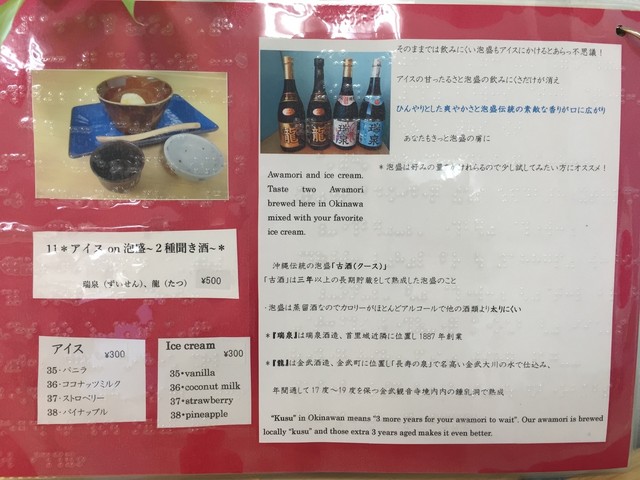 11＊アイス on 泡盛~２種聞き酒~＊
瑞泉（ずいせん）、龍（たつ） ¥500
アイス ¥300
35・バニラ
36・ココナッツミルク
37・ストロベリー
38・パイナップル
Ice cream ¥300
35・vanilla
36・coconut milk
37・strawberry
38・pineapple
龍
龍
瑞泉
瑞泉
そのままでは飲みにくい泡盛もアイスにかけるとあらっ不思議！
アイスの甘ったるさと泡盛の飲みにくさだけが消え
ひんやりとした爽やかさと泡盛伝統の素敵な香りが口に広がり
あなたもきっと泡盛の虜に
＊泡盛は好みの量でかけれらるので少し試してみたい方にオススメ！
Awamori and ice cream.
Taste two Awamori
brewed here in Okinawa
mixed with your favorite
ice cream.
沖縄伝統の泡盛「古酒（クース）」
「古酒」は三年以上の長期貯蔵をして熟成した泡盛のこと
・泡盛は蒸留酒なのでカロリーがほとんどアルコールで他の酒類より太りにくい
＊『瑞泉』は瑞泉酒造、首里城近隣に位置し 1887 年創業
＊『龍』は金武酒造、金武町に位置し「長寿の泉」で名高い金武大川の水で仕込み、
年間通して 17 度～19 度を保つ金武観音寺境内内の鍾乳洞で熟成
“Kusu” in Okinawan means “3 more years for your awamori to wait”. Our awamori is brewed
locally “kusu” and those extra 3 years aged makes it even better.